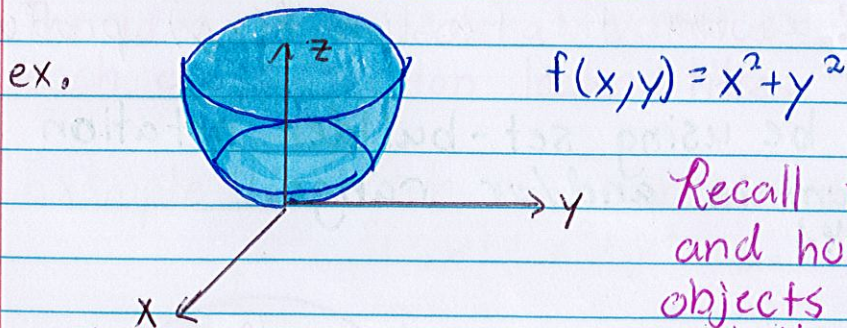 ex.
z
f(x,y) = x²+y²
Recall
y
and ho
objects
x